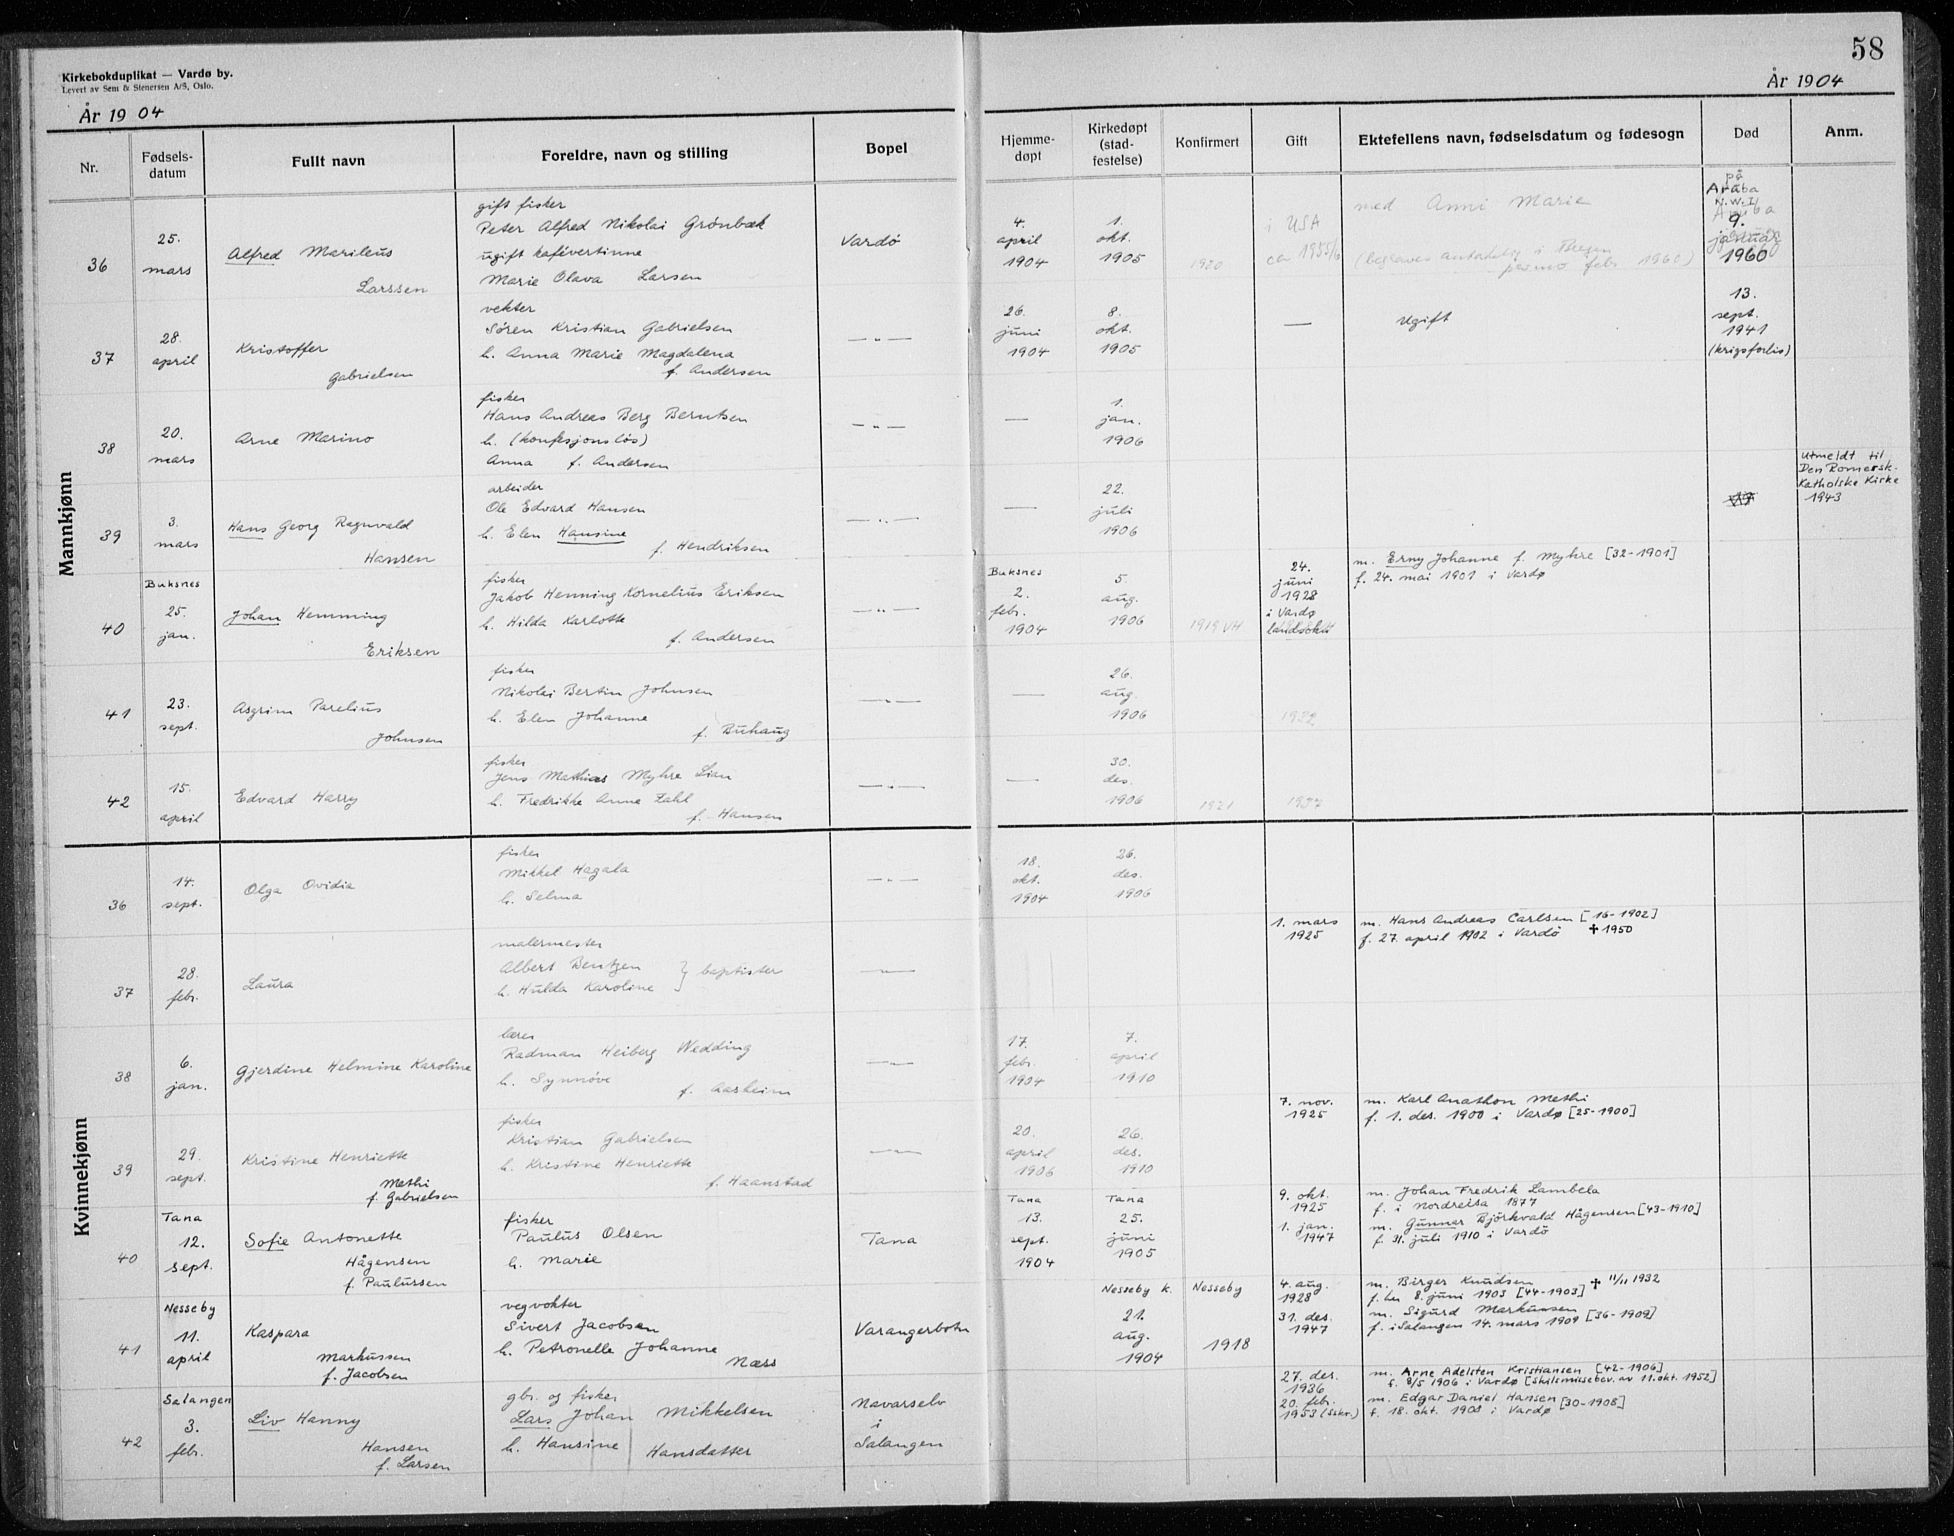 58
Kirkebokduplikat — Vardø by.
Levert av Sem & Stenersen A/S, Oslo.
År 1904
År 1904
Nr.
Fødsels-
datum
Fullt navn
Foreldre, navn og stilling
Bopel
Hjemme-
døpt
Kirkedøpt
(stad-
festelse)
Konfirmert
Gift
Ektefellens navn, fødselsdatum og fødesogn
Død
Anm.
Mannkjønn
36
25.
mars
Alfred Marileus
Larssen
gift fisker
Peter Alfred Nikolai Grönbæk
ugift kafévertinne
Marie Olava Larsen
Vardö
4.
april
1904
1.
okt.
1905
1920
i USA
ca 1955/6
med Anni Marie
(begraves antadelig i
primo febr. 1960)
på
Aruba
N.W.I
9.
januar
1960
37
28.
april
Kristoffer
Gabrielsen
vekter
Sören Kristian Gabrielsen
h. Anna Marie Magdalena
f. Andersen
— „ —
26.
juni
1904
8.
okt.
1905
—
Ugift
13.
sept.
1941
(krigsforlis)
38
20.
mars
Arne Marino
fisker
Hans Andreas Berg Berntsen
h. (konfesjonslös)
Anna f. Andersen
— „ —
—
1.
jan.
1906
39
3.
mars
Hans Georg Ragnvald
Hansen
arbeider
Ole Edvard Hansen
h. Elen Hansine
f. Hendriksen
— „ —
—
22.
juli
1906
utmeldt til
Den Romersk-
Katholske Kirke
1943
40
Buksnes
25.
jan.
Johan Hemming
Eriksen
fisker
Jakob Henning Kornelius Eriksen
h. Hilda Karlotte
f. Andersen
— „ —
Buksnes
2.
febr.
1904
5.
aug.
1906
1919 VH
24.
juni
1928
i Vardø
landsokn
m. Erny Johanne f. Myhre [32-1901]
f. 24. mai 1901 i Vardø
41
23.
sept.
Asgrim Parelius
Johnsen
fisker
Nikolai Bertin Johnsen
h. Elen Johanne
f. Buhaug
— „ —
—
26.
aug.
1906
1932
42
15.
april
Edvard Harry
fisker
Jens Mathias Myhre Lian
h. Fredrikke Anne Zahl
f. Hansen
— „ —
—
30.
des.
1906
1921
1937
Kvinnekjønn
36
14.
sept.
Olga Ovidia
fisker
Mikkel Hagala
h. Selma
— „ —
18.
okt.
1904
26.
des.
1906
37
28.
febr.
Laura
malermester
Albert Bentzen
h. Hulda Karoline } baptister
— „ —
1. mars
1925
m. Hans Andreas Carlsen [16-1902]
f. 27. april 1902 i Vardö ✝ 1950
38
6.
jan.
Gjerdine Helmine Karoline
lærer
Radman Heiberg Wedding
h. Synnöve
f. Aarheim
— „ —
17.
febr.
1904
7.
april
1910
39
29.
sept.
Kristine Henriette
Methi
f. Gabrielsen
fisker
Kristian Gabrielsen
h. Kristine Henriette
f. Haanstad
— „ —
20.
april
1906
26.
des.
1910
7. nov.
1925
m. Karl Anathon Methi
f. 1. des. 1900 i Vardø [25-1900]
40
Tana
12.
sept.
Sofie Antonette
Hågensen
f. Paulussen
fisker
Paulus Olsen
h. Marie
Tana
Tana
13.
sept.
1904
Tana
25.
juni
1905
9. okt.
1925
1. jan.
1947
m. Johan Fredrik Lambela
f. i Nordreisa 1877
m. Gunnar Björkvald Hågensen [43-1910]
f. 31. juli 1910 i Vardö
41
Nesseby
11.
april
Kaspara
Markussen
f. Jacobsen
vegvokter
Sivert Jacobsen
h. Petronelle Johanne
Næss
Varangerbotn
Nesseby k.
21.
aug.
1904
Nesseby
1918
4. aug.
1928
31. des.
1947
m. Birger Knudsen ✝ 11/11 1932
f. her 8. juni 1903 [44-1903]
m. Sigurd Markussen [36-1909]
f. i Salangen 14. mars 1909
42
Salangen
3.
febr.
Liv Hanny
Hansen
f. Larsen
gbr. og fisker
Lars Johan Mikkelsen
h. Hansine Hansdatter
Navarselv
i
Salangen
27. des.
1936
20. febr.
1953 (Sskr.)
m. Arne Adelsten Kristiansen [42-1906]
f. 8/5 1906 i Vardø [Skilsmissebev. av 11. okt. 1952]
m. Edgar Daniel Hansen [30-1908]
f. 18. okt. 1908 i Vardø